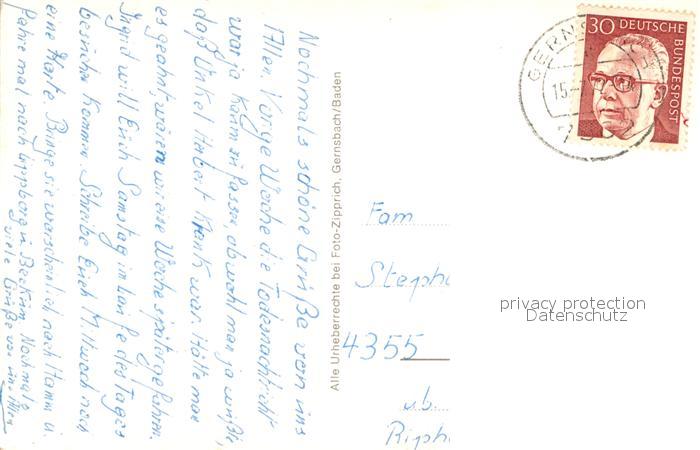 Nochmals schöne Grüße von uns
Allen. Vorige Woche die Todesnachricht
war ja kaum zu fassen, obwohl man ja wußte,
daß Onkel Hubert krank war. Hätte man
es geahnt, wären wir eine Woche später gefahren.
Ingrid will Euch Samstag im Laufe des Tages
besuchen kommen. Schreibe Euch Mittwoch noch
eine Karte. Bringe sie warscheinlich nach Hamm u.
fahre mal nach Lippborg u. Beckum. Nochmals
viele Grüße von uns Allen
Alle Urheberrechte bei Foto-Zipprich, Gernsbach/Baden
30 DEUTSCHE
BUNDESPOST
GERNS
15.
Fam
Steph
4355
üb.
privacy protection
Datenschutz